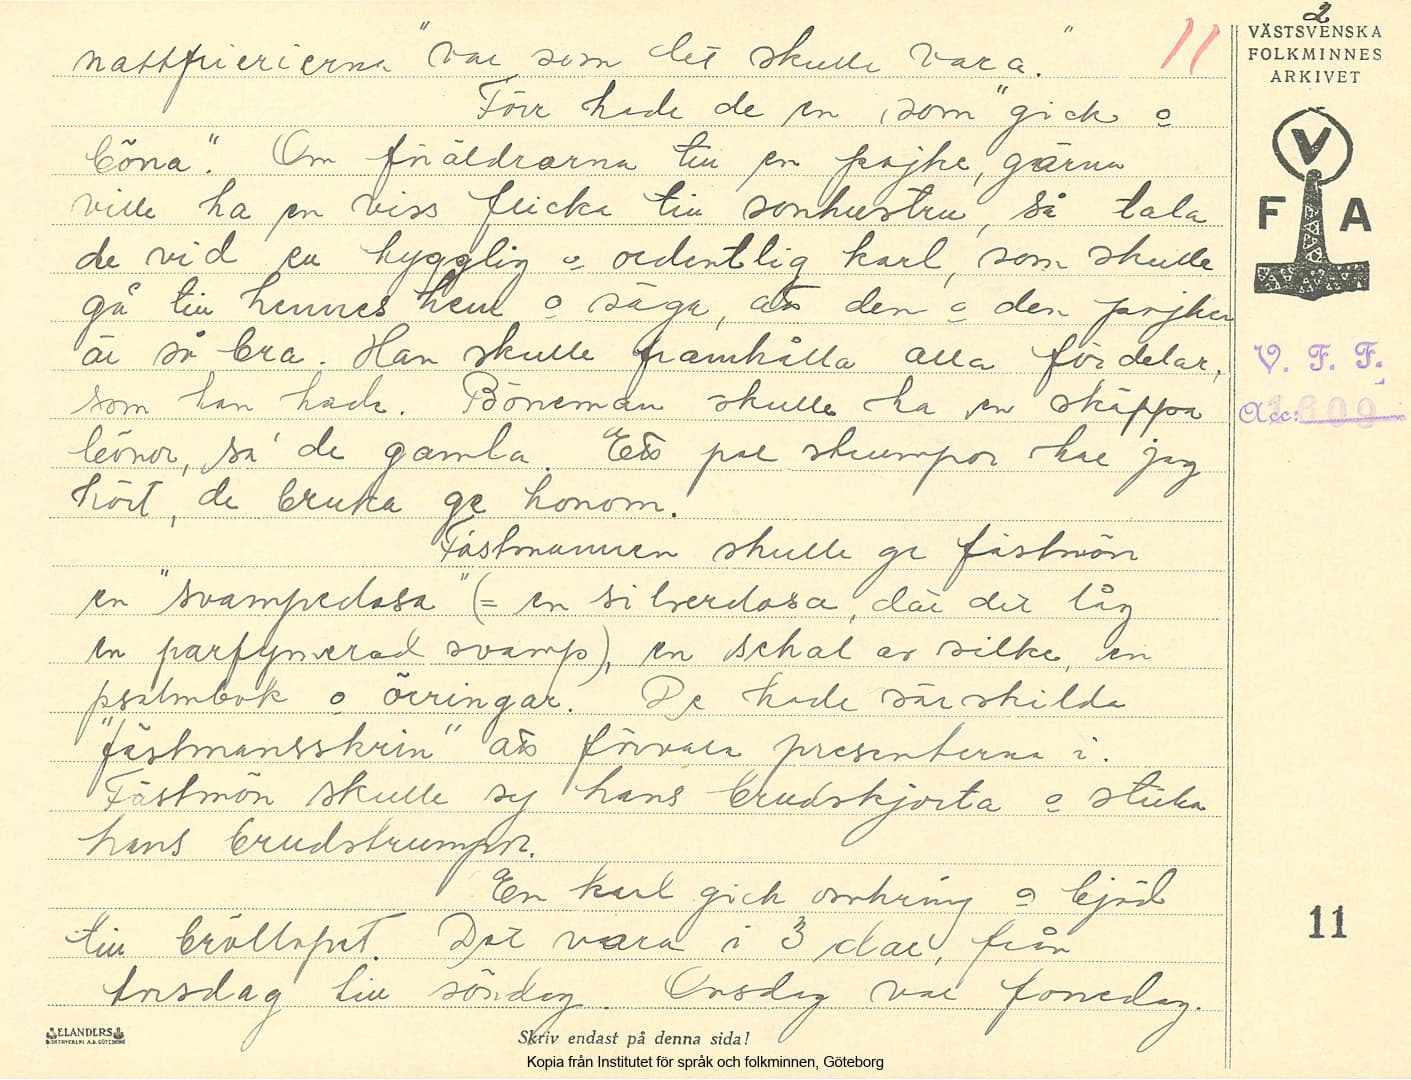 nattfrierierna "var som det skulle vara."
Förr hade de en, som "gick o
böna". Om föräldrarna till en pojke, gärna
ville ha en viss flicka till sonhustru, så tala
de vid en hygglig o ordentlig karl, som skulle
gå till hennes hem o säga, att den o den pojken
är så bra. Han skulle framhålla alla fördelar,
som han hade. Böneman skulle ha en skäppa
bönor, sa' de gamla. Ett par strumpor har jag
hört, de bruka ge honom.
Fästmannen skulle ge fästmön
en "svampedosa" (= en silverdosa, där det låg
en parfymerad svamp), en schal av silke, en
psalmbok o örringar. De hade särskilda
"fästmansskrin" att förvara presenterna i.
Fästmön skulle sy hans brudskjorta o sticka
hans brudstrumpor.
En karl gick omkring o bjöd
till bröllopet. Det vara i 3 dar, från
torsdag till söndag. Onsdag var foredag.
11
2
VÄSTSVENSKA
FOLKMINNES
ARKIVET
V
F A
V. F. F.
Acc: 1609
11
ELANDERS
Skriv endast på denna sida!
Kopia från Institutet för språk och folkminnen, Göteborg